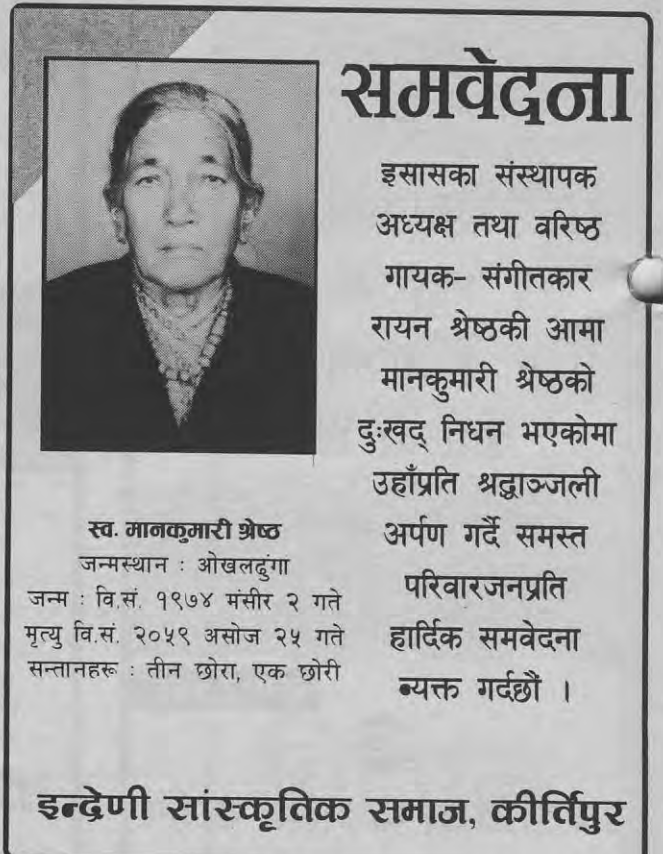 समवेदना
इसासका संस्थापक
अध्यक्ष तथा वरिष्ठ
गायक- संगीतकार
रायन श्रेष्ठकी आमा
मानकुमारी श्रेष्ठको
दुःखद् निधन भएकोमा
उहाँप्रति श्रद्धाञ्जली
अर्पण गर्दै समस्त
परिवारजनप्रति
हार्दिक समवेदना
ब्यक्त गर्दछौं ।
स्व. मानकुमारी श्रेष्ठ
जन्मस्थान : ओखलढुंगा
जन्म : वि.सं. १९७४ मंसीर २ गते
मृत्यु वि.सं. २०५९ असोज २५ गते
सन्तानहरू : तीन छोरा, एक छोरी
इन्द्रेणी सांस्कृतिक समाज, कीर्तिपुर